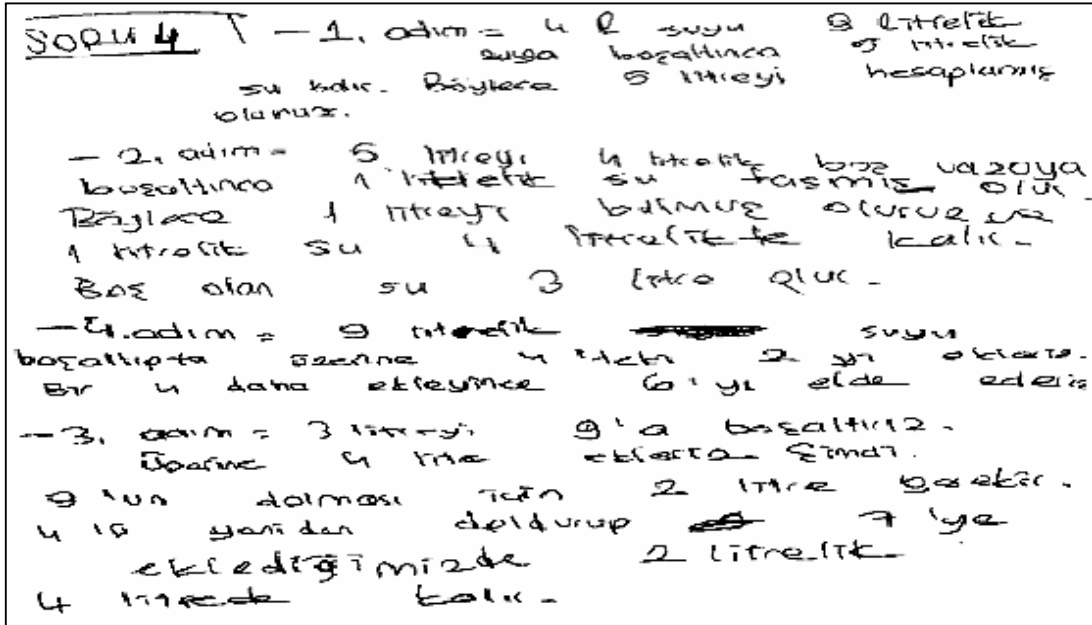 SORU 4 - 1. adım = 4 l suyu 9 litrelik
suya boşaltınca 5 litrelik
su kalır. Böylece 5 litreyi hesaplamış
oluruz.
- 2. adım = 5 litreyi 4 litrelik boş vazoya
boşaltınca 1 litrelik su taşmış olur
Böylece 1 litreyi bulmuş oluruz ve
1 litrelik su 4 litrelikte kalır.
Boş olan su 3 litre olur.
- 4. adım = 9 litrelik suyu
boşaltıpta üzerine 4 2 yi ekleriz.
Bir 4 daha ekleyince 6'yı elde ederiz
- 3. adım = 3 litreyi 9'a boşaltırız.
Üzerine 4 litre ekleriz Şimdi.
9'un dolması için 2 litre gerekir.
4 yeniden doldurup 7'ye
eklediğimizde 2 litrelik
4 litrede kalır.